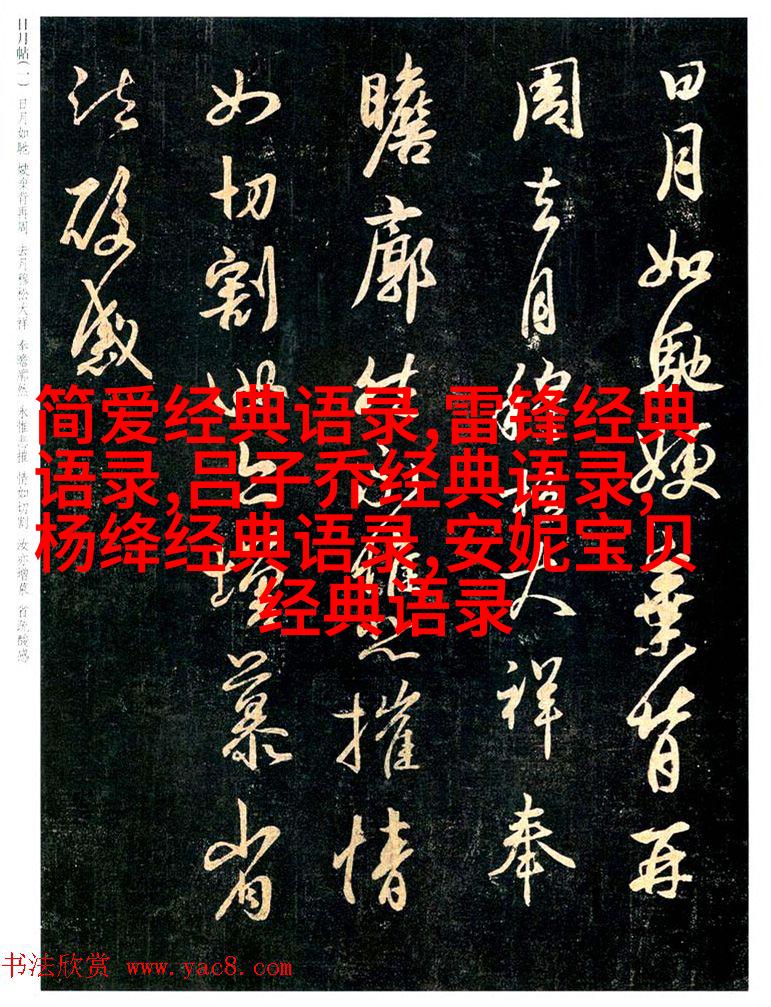 日月如馳嫂棄背再
周去月穆松大祥奉
瞻廓然永惟悲摧情
如切割汝亦增慕省
疏酸感
日月帖(一) 日月如馳 嫂棄背再周 去月穆松大祥 奉瞻廓然 永惟悲摧 情如切割 汝亦增慕 省疏酸感
简爱经典语录,雷锋经典
语录,吕子乔经典语录,
杨绛经典语录,安妮宝贝
经典语录
书法欣赏 www.yac8.com